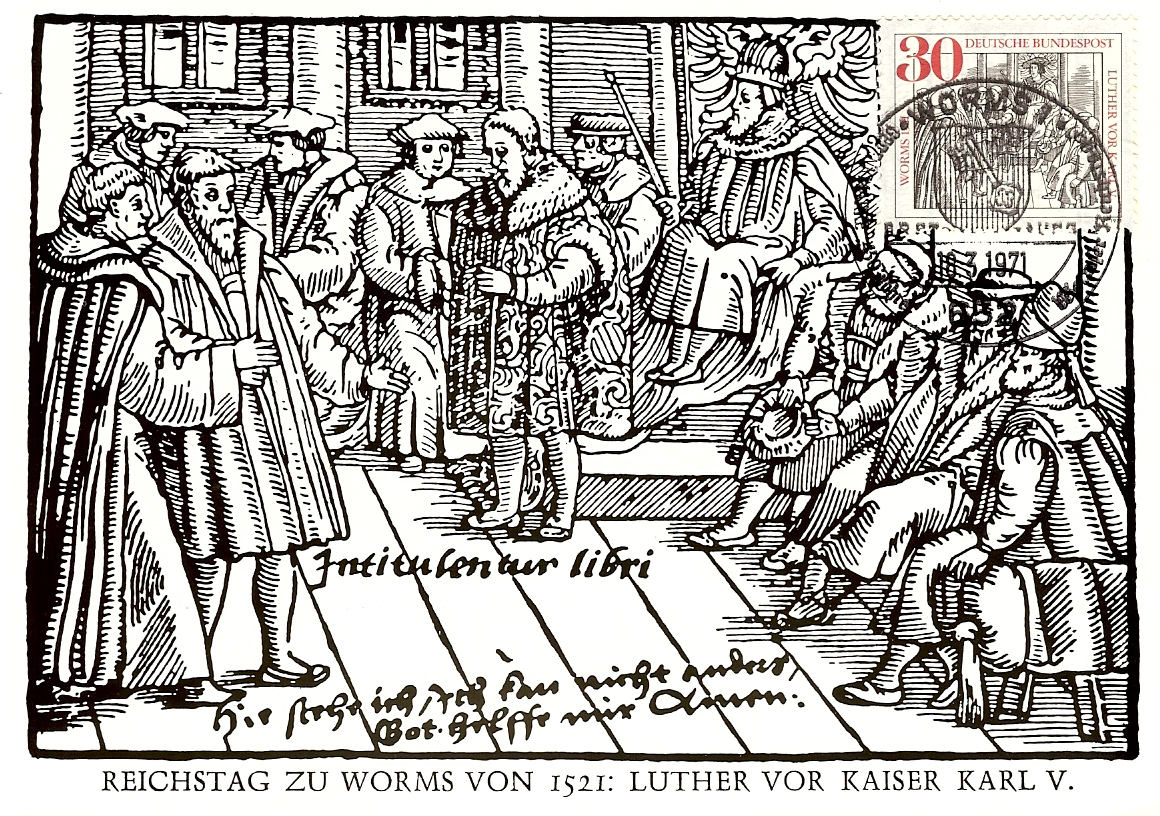 30 DEUTSCHE BUNDESPOST
LUTHER VOR KAISER KARL V.
WORMS
WORMS
18.3.1971
Intitulentur libri
Hie stehe ich, ich kan nicht anders,
Got helffe mir Amen.
REICHSTAG ZU WORMS VON 1521: LUTHER VOR KAISER KARL V.